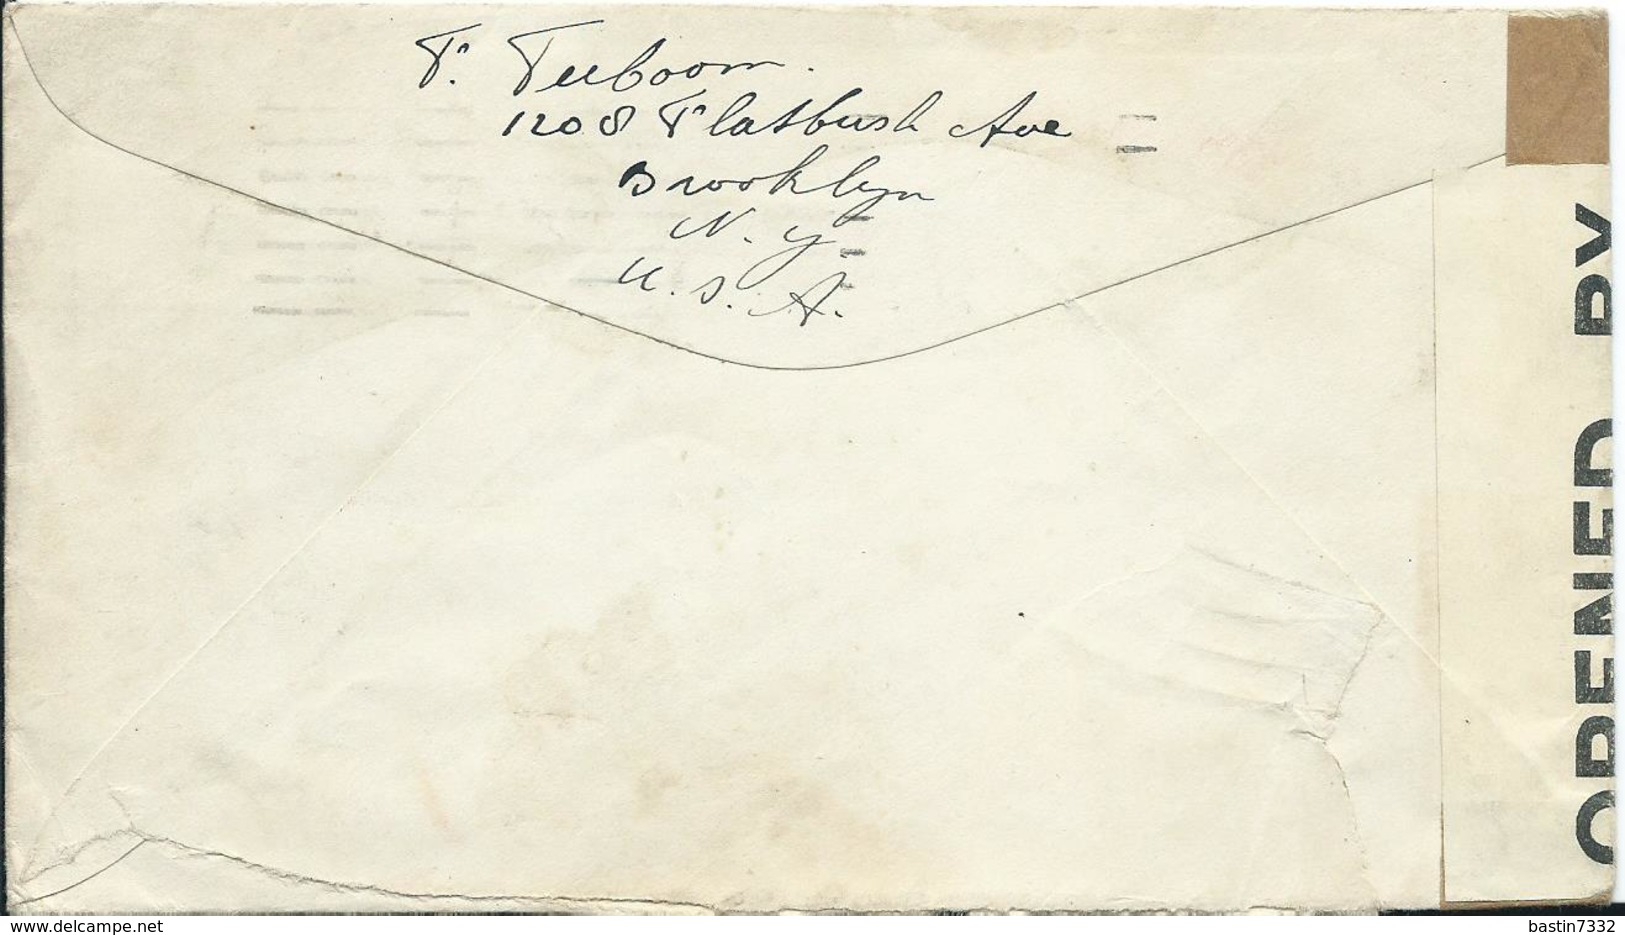 F. Teeboom.
1208 Flatbush Ave
Brooklyn
N.Y.
U.S.A.
OPENED BY
www.delcampe.net
bastin7332